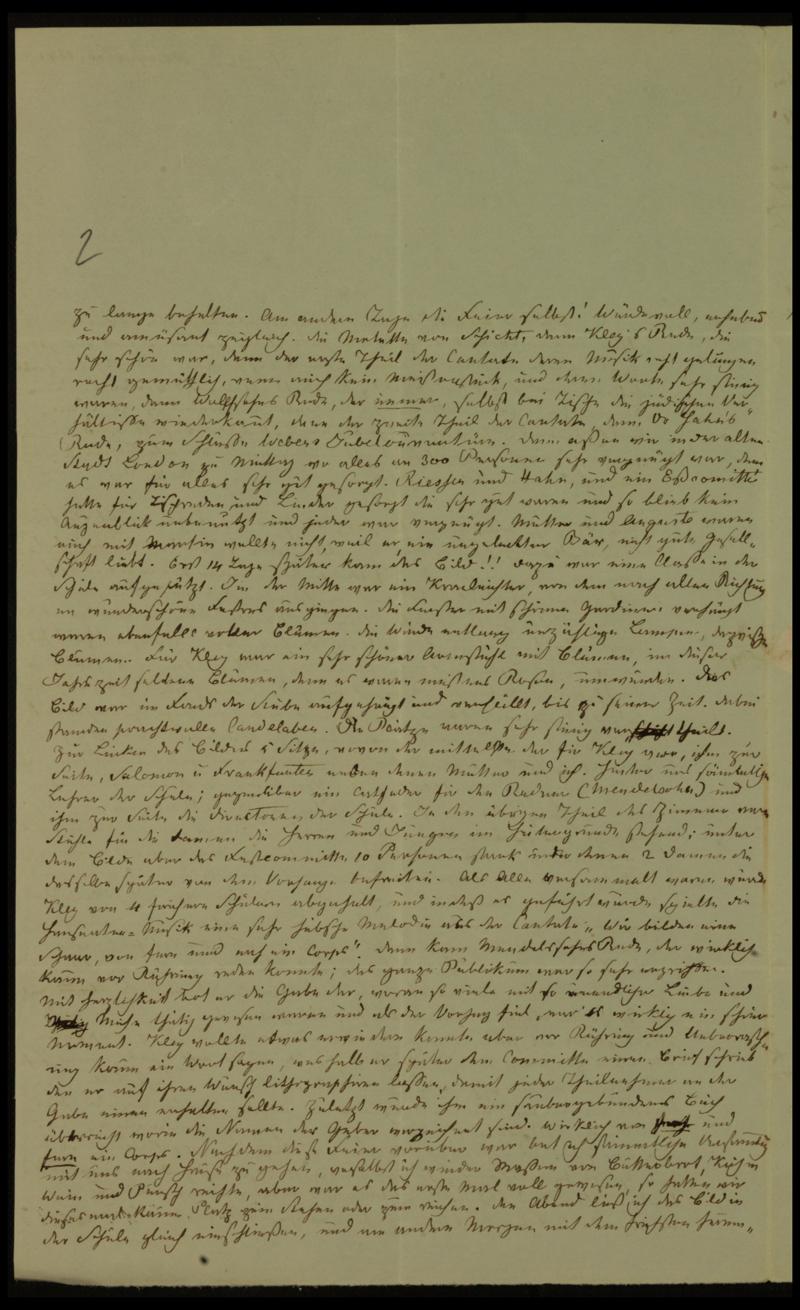 2
zu lange behalten. Am andern Tage die Feier selbst! Würdevoll, erhebend
und amüsant zugleich. die Motette von Schicht, dann Kley's Rede, die
sehr schön war, dann der erste Theil der Cantate deren Musik recht gelungen
recht gemüthlich, wenn auch kein Meisterstück, und deren Worte sehr sinnig
waren, dann Wolfssohns Rede, der immer, selbst bei Tische die jüdischen Ver-
hältnisse wiederkaut, dann der zweite Theil der Cantate, dann Dr Hahn's
Rede, zum Schlusse Webers Jubelouverture. dann aßen wir in der alten
Stadt London zu Mittag wo alles an 300 Personen sehr vergnügt war, denn
es war für alles sehr gut gesorgt. Riesser und Hahn, und ein Eßcomitté
hatte für Tischreden und Lieder gesorgt die sehr gut waren und so blieb kein
Augenblick unbenützt und jeder war vergnügt. Mutter und Auguste waren
auch mit, wollte nicht, weil er ein ungeleckter Bär, nicht gute Gesell-
schaft liebt. Erst 14 Tage später kam das Bild!! dazu war eine Classe in der
Schule aufgeputzt. In der Mitte war ein Kronleuchter, von dem nach allen Richtung
en wunderschöne Festons ausgingen. die Fenster mit schönen Gardinen verhängt
waren ebenfalls voller Blumen. die Wände entlang unzählige Lampen, dazwischen
Blumen. Für Kley war ein sehr schöner Armstuhl mit Blumen, in dieser
Jahrszeit seltene Blumen, denn es waren meistens Rosen, umwunden. Das
Bild war im Fonds der Stube aufgehängt und verhüllt, bis zu seiner Zeit. dabei
standen prachtvolle Candelaber. Die Plätze waren sehr sinnig vertheilt.
Zur Linken des Bildes 5 Sitze, wovon der mittelste der für Kley war, ihm zur
Seite, Salomon u Frankfurter neben denen Mutter und ich. Hinter uns sämtliche
Lehrer der Schule; gegenüber ein Catheder für den Redner (Mendelssohn) und
ihm zur Seite die Directoren der Schule. In den übrigen Theil des Zimmers waren
Stühle für die Damen die Herren und Jungen im Hintergrunde stehend; unter
dem Bilde aber das Festcommitté 10 Personen stark unter denen 2 Damen die
dasselbe später von dem Vorhange befreiten. Als Alle versammelt waren wurde
Kley von 4 frühern Schülern abgeholt, und indeß er geführt wurde spielte die
Hanseaten-Musik eine sehr hübsche Melodie aus der Cantate „Wir bilden eine
Schaar, von fern und nah ein Corps". dann kam Mendelssohns Rede, der wirklich
kaum vor Rührung reden konnte; das ganze Publikum war so sehr ergriffen.
Mit Herzlichkeit bot er die Gabe dar, woran so viele mit so unendlicher Liebe und
Mühe thätig gewesen waren und als der Vorhang fiel, war es wirklich ein schöner
Moment. Kley wollte etwas erwiedern konnte aber vor Rührung und Ueberrasch-
ung kaum ein Wort sagen, weshalb er später dem Committé einen Brief schrieb
den er auf ihren Wunsch lithographiren lassen, damit jeder Theilnehmer an der
Gabe einen erhalten sollte. Zuletzt wurde ihm ein saubergebundenes Buch
überreicht worin die Namen der Geber verzeichnet sind. Wirklich von und
fern ein Corps. Nachdem diese Feier vorüber war bat ich sämmtliche
mit uns nach Hause zu gehen, woselbst ich wieder Massen von Butterbrot, Kuchen
Wein und Punsch reichte, aber war es das erste Mal voll gewesen, so hatten wir
diesesmal kaum Platz zum Stehen oder zum reichen. den Abend ließ ich das Bild in
der Schule gleich einschließen, und am andern Morgen mit dem frühsten herum-